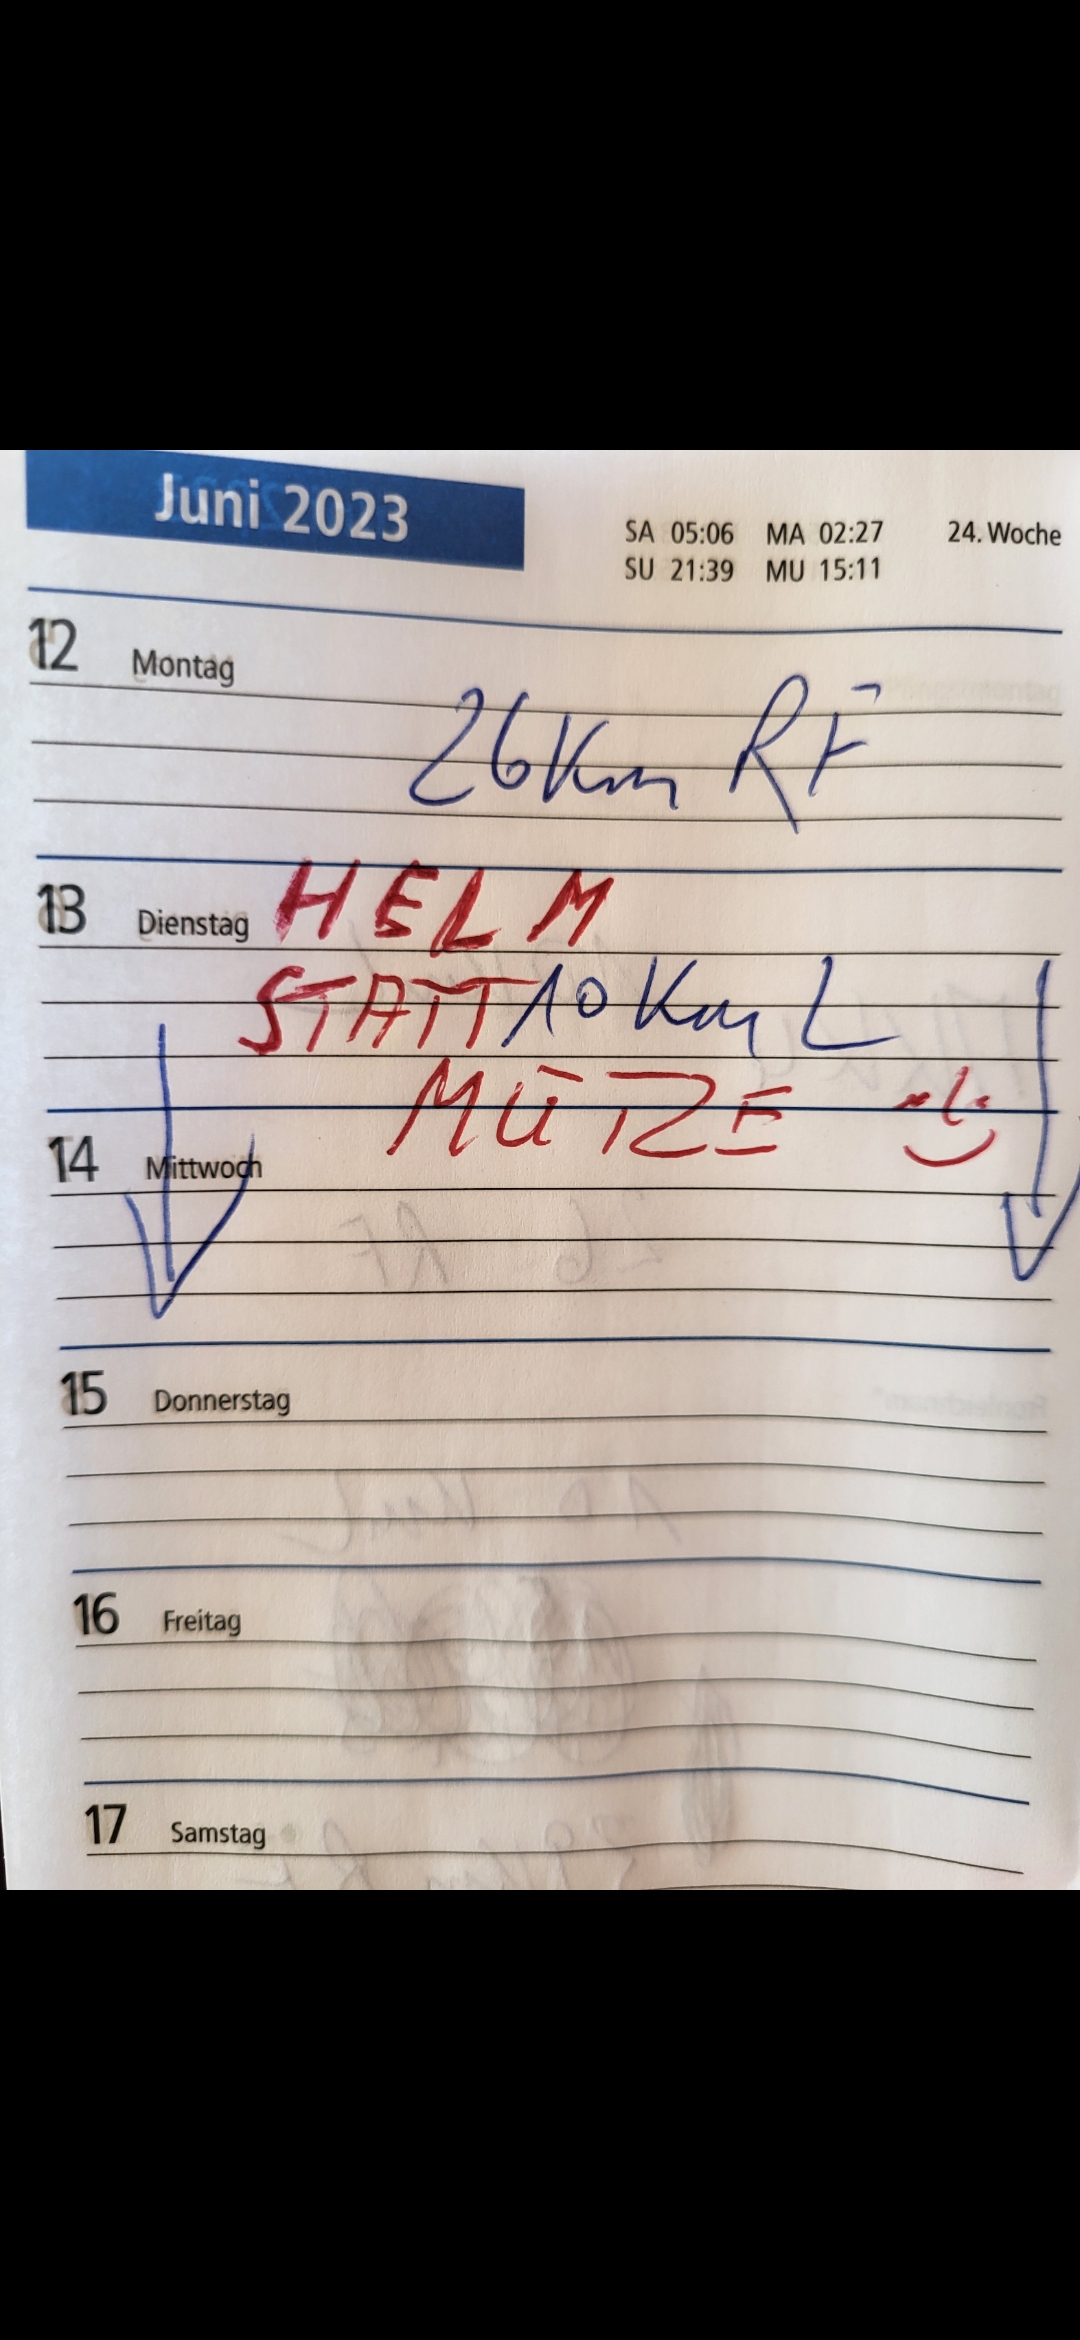 Juni 2023
SA 05:06 MA 02:27 24. Woche
SU 21:39 MU 15:11
12 Montag
26 Km RF
13 Dienstag HELM
STATT 10 Km L
MÜTZE
14 Mittwoch
15 Donnerstag
16 Freitag
17 Samstag